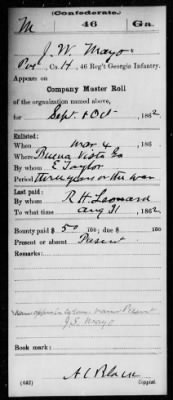 (Confederate.)
M 46 Ga.
J. W. Mayo
Pvt, Co. H, 46 Reg't Georgia Infantry.
Appears on
Company Muster Roll
of the organization named above,
for Sept & Oct, 1862
Enlisted:
When Mar 4, 186
Where Buena Vista Ga
By whom E Taylor
Period three years or the war
Last paid:
By whom R. H. Leonard
To what time Aug 31, 1862
Bounty paid $ 50 100; due $ 100
Present or absent Present
Remarks:
J. S. Mayo
Book mark:
A C Black
(642) Copyist.